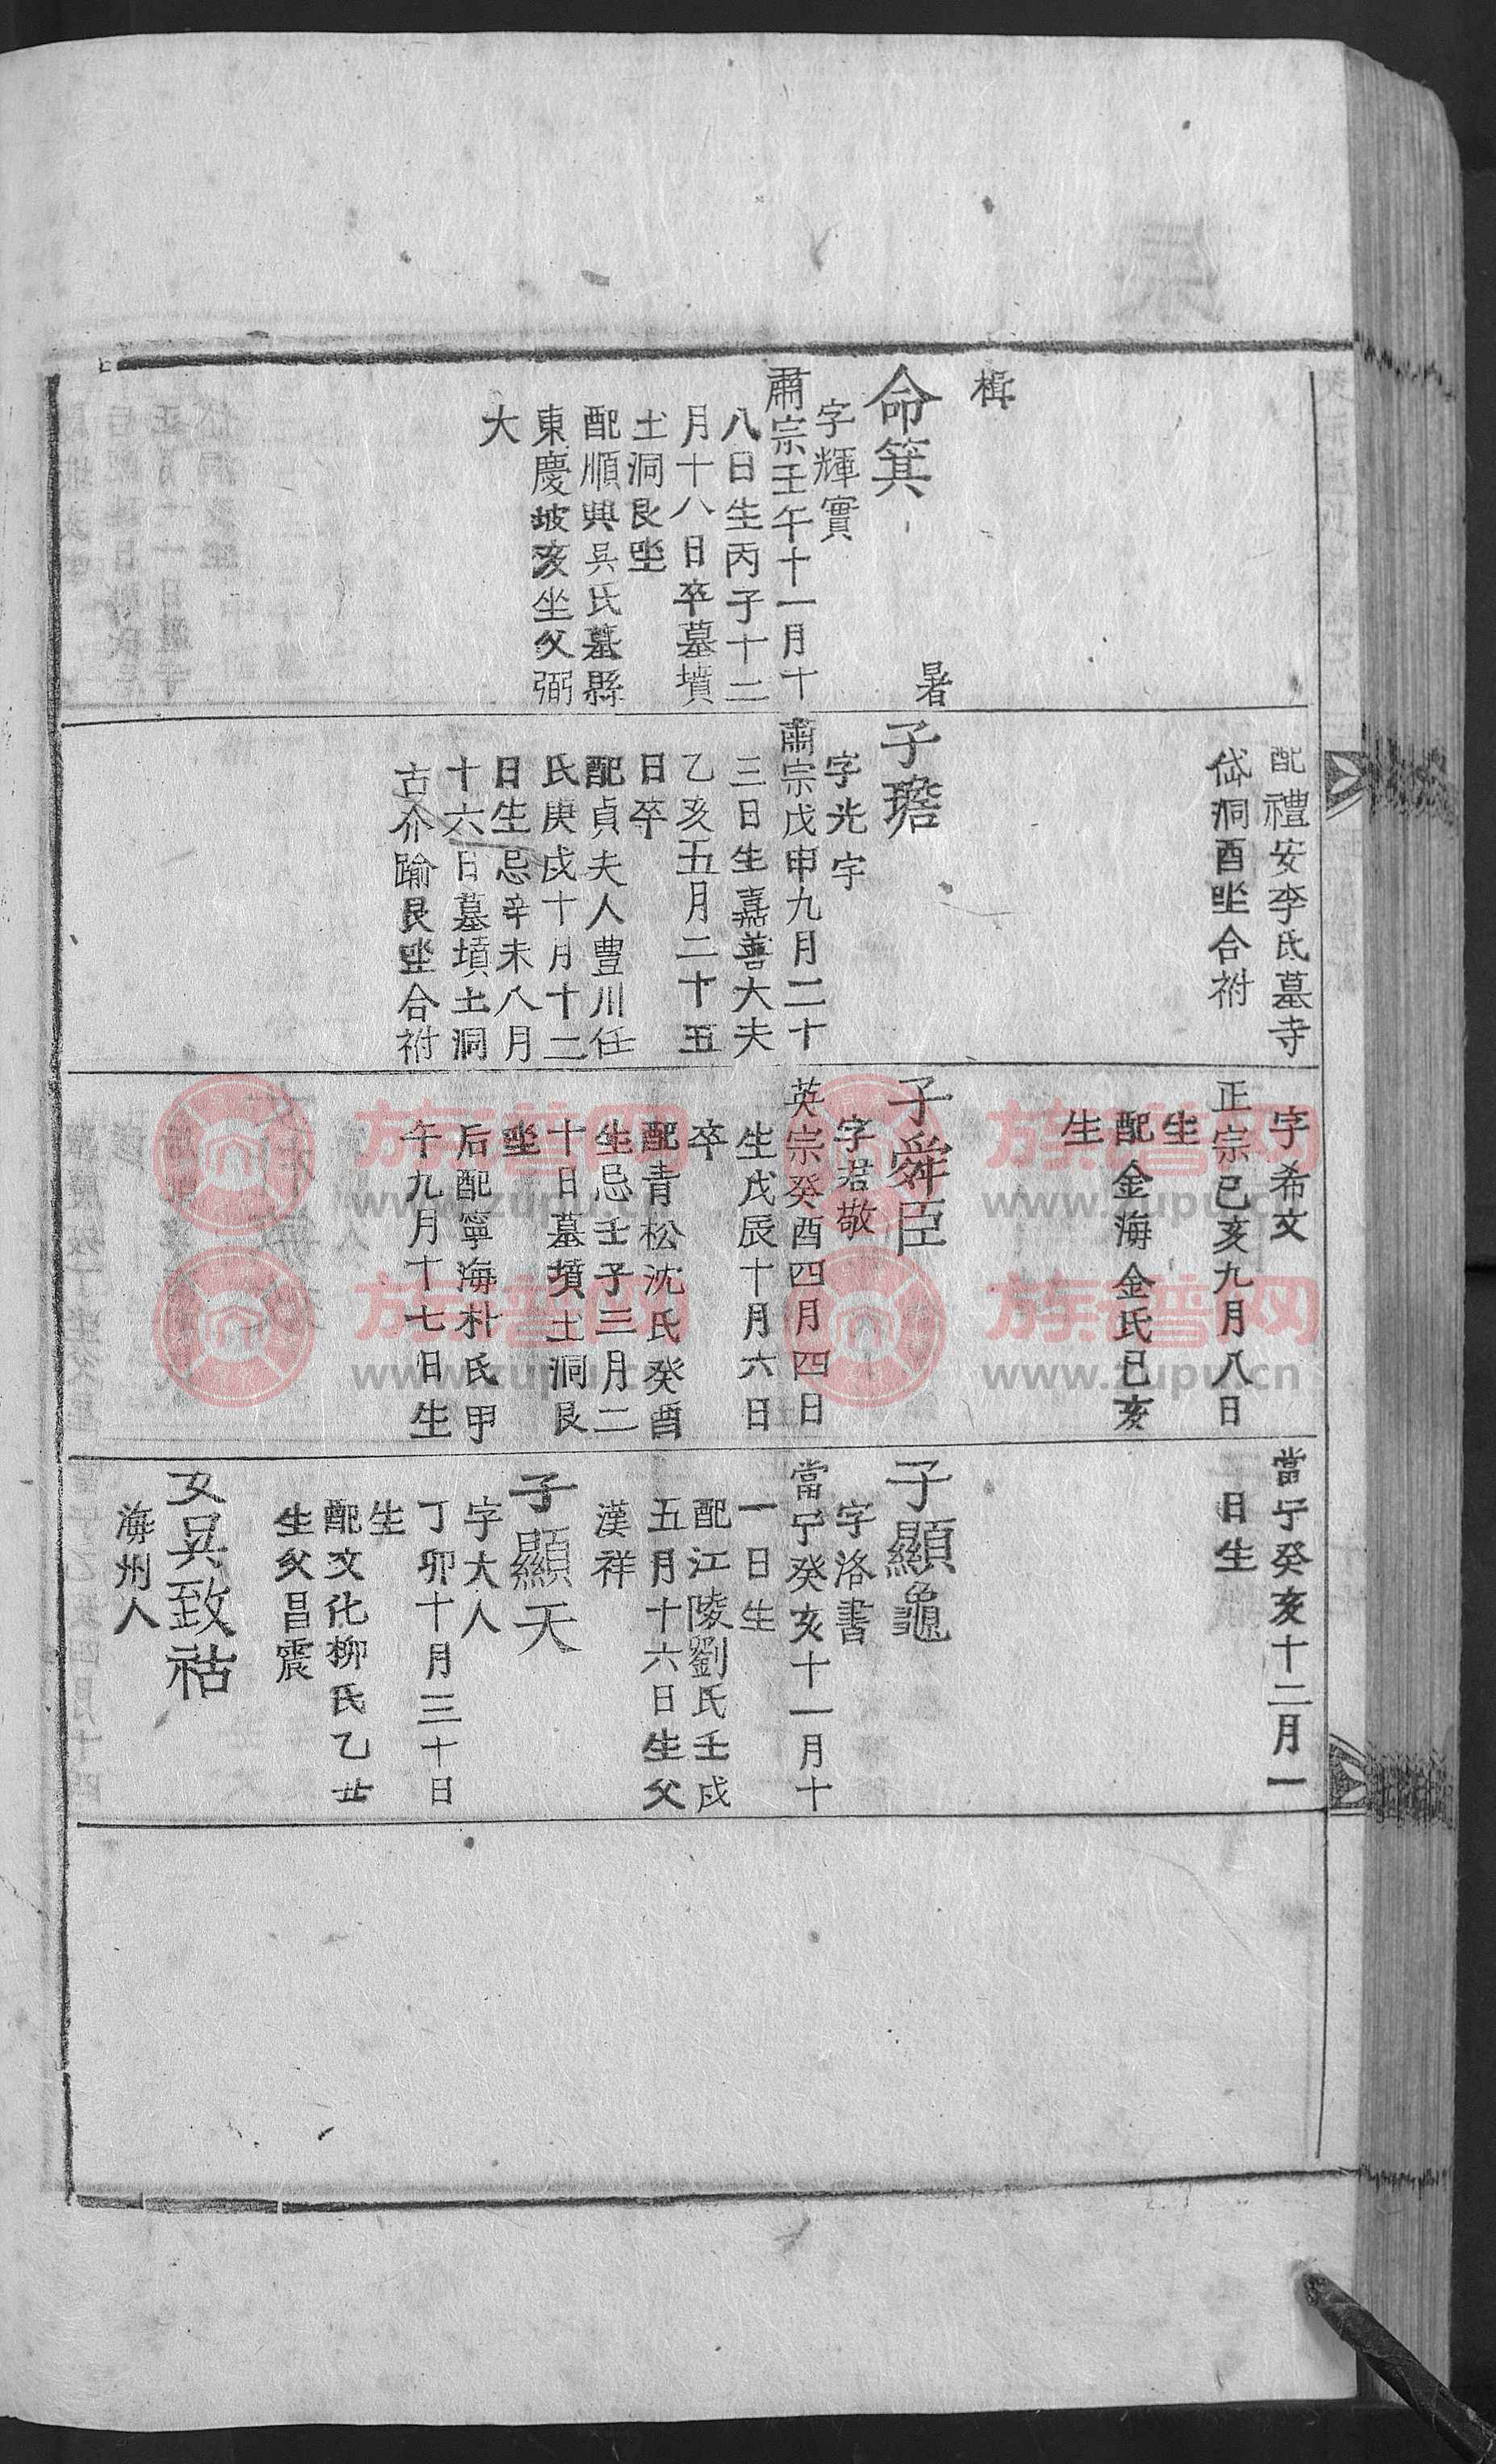 楫
命箕
字輝實
肅宗壬午十一月十
八日生丙子十二
月十八日卒墓墳
土洞艮坐
配順興吳氏墓縣
東慶坡亥坐父弼
大
暑
配禮安李氏墓寺
岱洞酉坐合祔
子瑎
字光宇
肅宗戊申九月二十
三日生嘉善大夫
乙亥五月二十五
日卒
配貞夫人豊川任
氏庚戌十月十二
日生忌辛未八月
十六日墓墳土洞
古介踰艮坐合祔
字希文
正宗己亥九月八日
生
配金海金氏己亥
生
子舜臣
字君敬
英宗癸酉四月四日
生戊辰十月六日
卒
配青松沈氏癸酉
生忌壬子三月二
十日墓墳土洞艮
坐
后配寧海朴氏甲
午九月十七日生
當宁癸亥十二月一
日生
子顯龜
字洛書
當宁癸亥十一月十
一日生
配江陵劉氏壬戌
五月十六日生父
漢祥
子顯天
字大人
丁卯十月三十日
生
配文化柳氏乙丑
生父昌震
女吳致祜
海州人
族譜网
www.zupu.cn
族譜网
www.zupu.cn
族譜网
www.zupu.cn
族譜网
www.zupu.cn